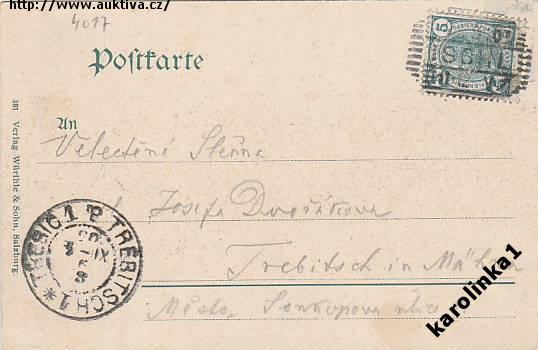 http://www.auktiva.cz/
4017
Postkarte
5
381 Verlag Würthle & Sohn, Salzburg
An
Velectěná Slečna
Josefa Dvořáková
Trebitsch in Mähren
Město,
TŘEBIČ 1 TREBITSCH 1
karolinka1